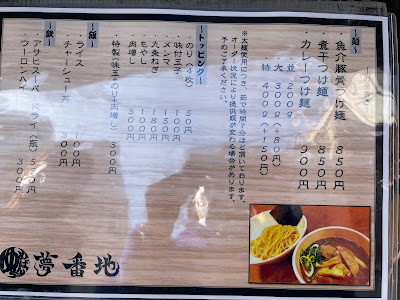 〜麺〜
・魚介豚骨つけ麺　850円
・煮干つけ麺　850円
・カレーつけ麺　900円
並　200g
・大　300g（+80円）
・特　400g（+150円）
※太麺使用につき、茹で時間7分ほど頂いております。
オーダー状況により提供順が変わる場合があります。
予めご了承ください。
〜トッピング〜
・のり（4枚）　50円
・味付玉子　100円
・メンマ　150円
・九条ねぎ　100円
・もやし　100円
・肉増し
・特製（味玉・のり・肉増し）　300円
〜飯〜
・ライス　100円
・チャーシュー丼　300円
〜飲〜
・アサヒスーパードライ（缶）
・ウーロンハイ　300円
夢番地